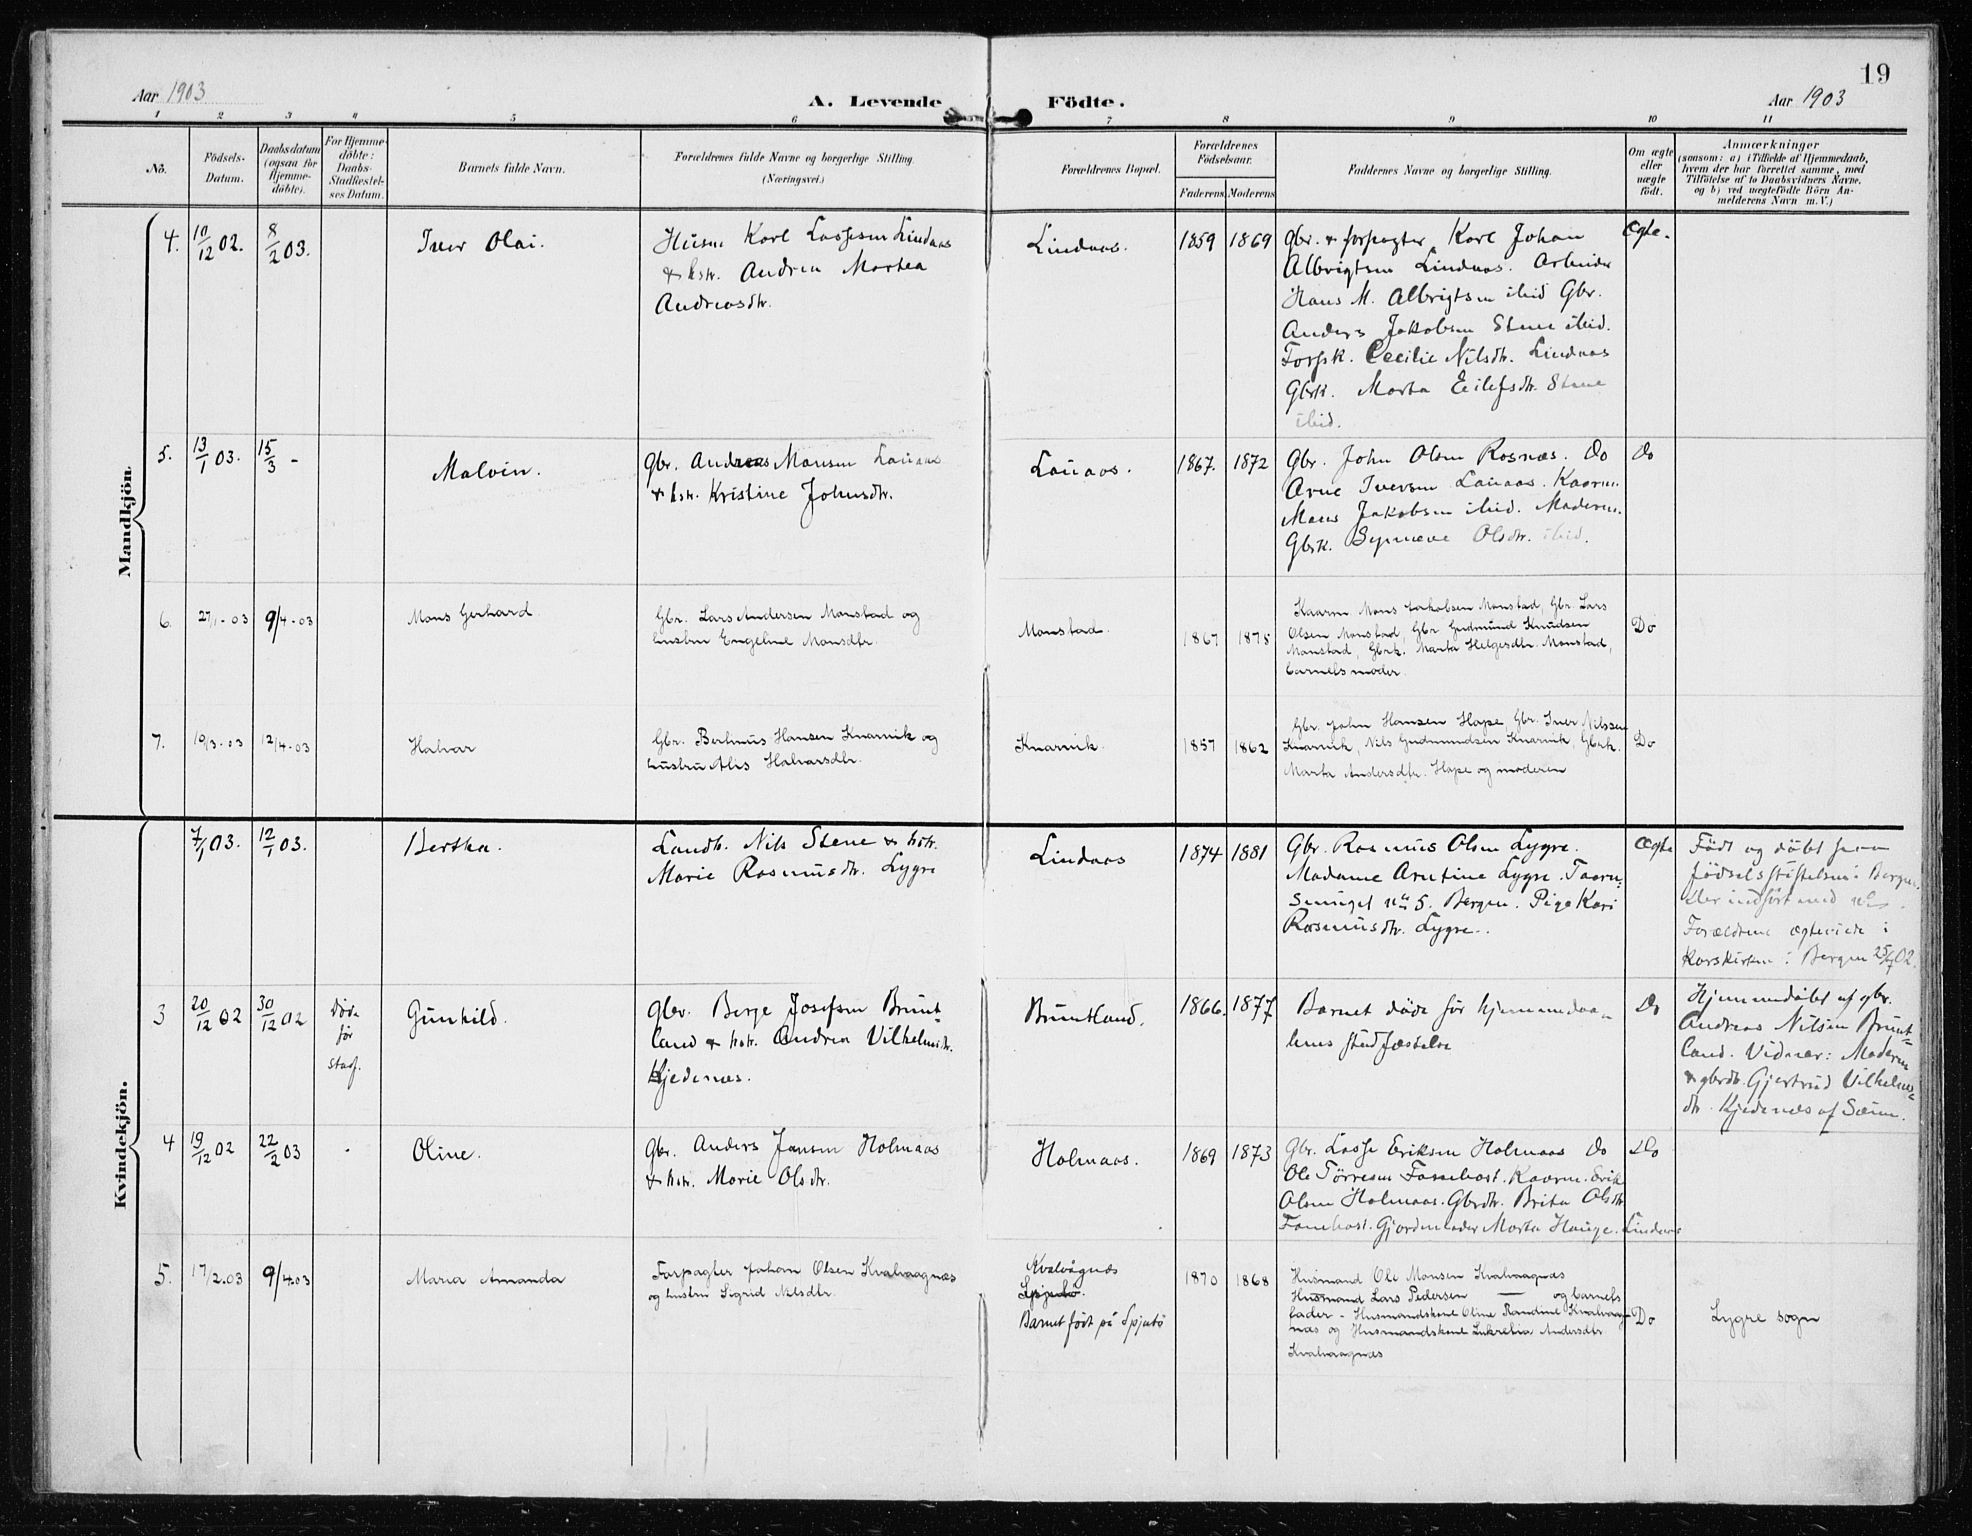 19
Aar 1903
A. Levende Födte.
Aar 1903
1 2 3 4 5 6 7 8 9 10 11
No.
Födsels-
Datum.
Daabsdatum
(ogsaa for
Hjemme-
döbte).
For Hjemme-
döbte:
Daabs-
Stadfæstel-
ses Datum.
Barnets fulde Navn.
Forældrenes fulde Navne og borgerlige Stilling.
(Næringsvei.)
Forældrenes Bopæl.
Forældrenes
Födselsaar.
Faderens Moderens
Faddernes Navne og borgerlige Stilling.
Om ægte
eller
uægte
födt.
Anmærkninger
(saasom: a) i Tilfælde af Hjemmedaab,
hvem der har forrettet samme, med
Tilföielse af to Daabsvidners Navne,
og b) ved uægtefödte Börn An-
melderens Navn m. V.)
Mandkjön.
4. 10/12 02. 8/2 03.
Iver Olai.
Husm Karl Lassesen Lindaas
& hstr. Andrea Martea
Andreasdtr.
Lindaas.
1859 1869
Gbr. & forpagter Karl Johan
Albrigtsen Lindaas. Arbeider
Hans M. Albrigtsen ibid Gbr.
Anders Jakobsen Stene ibid.
Forpk. Cecilie Nilsdtr. Lindaas
Gbrk. Marta Eilefsdtr. Stene
ibid.
Ægte.
5. 13/1 03. 15/3 -
Malvin.
Gbr. Andreas Monsen Lauaas
& hstr. Kristine Johnsdtr.
Lauaas.
1867. 1872
Gbr. John Olsen Rosnæs. Do
Arne Iversen Lauaas. Kaarm.
Mons Jakobsen ibid. Moderen.
Gbrk. Synneve Olsdtr. ibid.
Do
6. 27/1-03 9/4-03
Mons Gerhard
Gbr. Lars Andersen Monstad og
hustru Engeline Monsdtr.
Monstad.
1867 1875
Kaarm Mons Jakobsen Monstad, Gbr. Lars
Olsen Monstad, Gbr Gudmund Knudsen
Monstad, Gbrk. Marta Helgesdtr. Monstad,
barnets moder.
Do
7. 10/3-03 12/4-03
Halvar
Gbr. Berhnus Hansen Knarvik og
hustru Alis Halvarsdtr.
Knarvik.
1857 1862
Gbr. John Hansen Hope, Gbr. Iver Nilssen
Knarvik, Nils Gudmundsen Knarvik, Gbrk.
Marta Andersdtr. Hope og moderen
Do
Kvindekjön.
7/1 03. 12/1 03.
Bertha.
Landh. Nils Stene & hstr.
Marie Rasmusdtr. Lygre
Lindaas
1874 1881
Gbr. Rasmus Olsen Lygre.
Madame Arntine Lygre. Taarn-
smuget no 5. Bergen. Pige Kari
Rasmusdtr. Lygre.
Ægte
Født og døbt paa
fødselsstiftelsen i Bergen.
Eller indført med no
Forældrene ægteviede i
Korskirken i Bergen 25/7 02.
3 20/12 02 30/12 02
Døde
før
stadf.
Gunhild.
Gbr. Berge Josefsen Brunt-
land & hstr. Andrea Vilhelmsdtr.
Kjedenæs.
Bruntland.
1866. 1877
Barnet døde før hjemmedaa-
bens stadfæstelse
Do
Hjemmedøbt af gbr.
Andreas Nilsen Brunt-
land. Vidner: Moderen
& gbrdtr. Gjertrud Vilhelms-
dtr. Kjedenæs af Sæim.
4 19/12 02 22/2 03 -
Oline.
Gbr. Anders Jansen Holmaas
& hstr. Marie Olsdtr.
Holmaas.
1869 1873
Gbr. Lasse Eriksen Holmaas Do
Ole Tørresen Fannebost. Kaarm. Erik
Olsen Holmaas. Gbrdtr. Brita Olsdtr
Fannebost. Gjordemoder Marta Hauge. Lindaas
Do
5. 17/2.03 9/4.03
Maria Amanda
Forpagter Johan Olsen Kvalvaagnæs
og hustru Sigrid Nilsdtr.
Kvalvågnæs
Spjutö.
Barnet født på Spjutö
1870 1868
Husmand Ole Monsen Kvalvaagnæs
Husmand Lars Pedersen — og barnets
fader - Husmandskone Oline Randine Kvalvaag-
næs og Husmandskone Lukretia Andersdtr
Kvalvaagnæs
Do
Lygre sogn